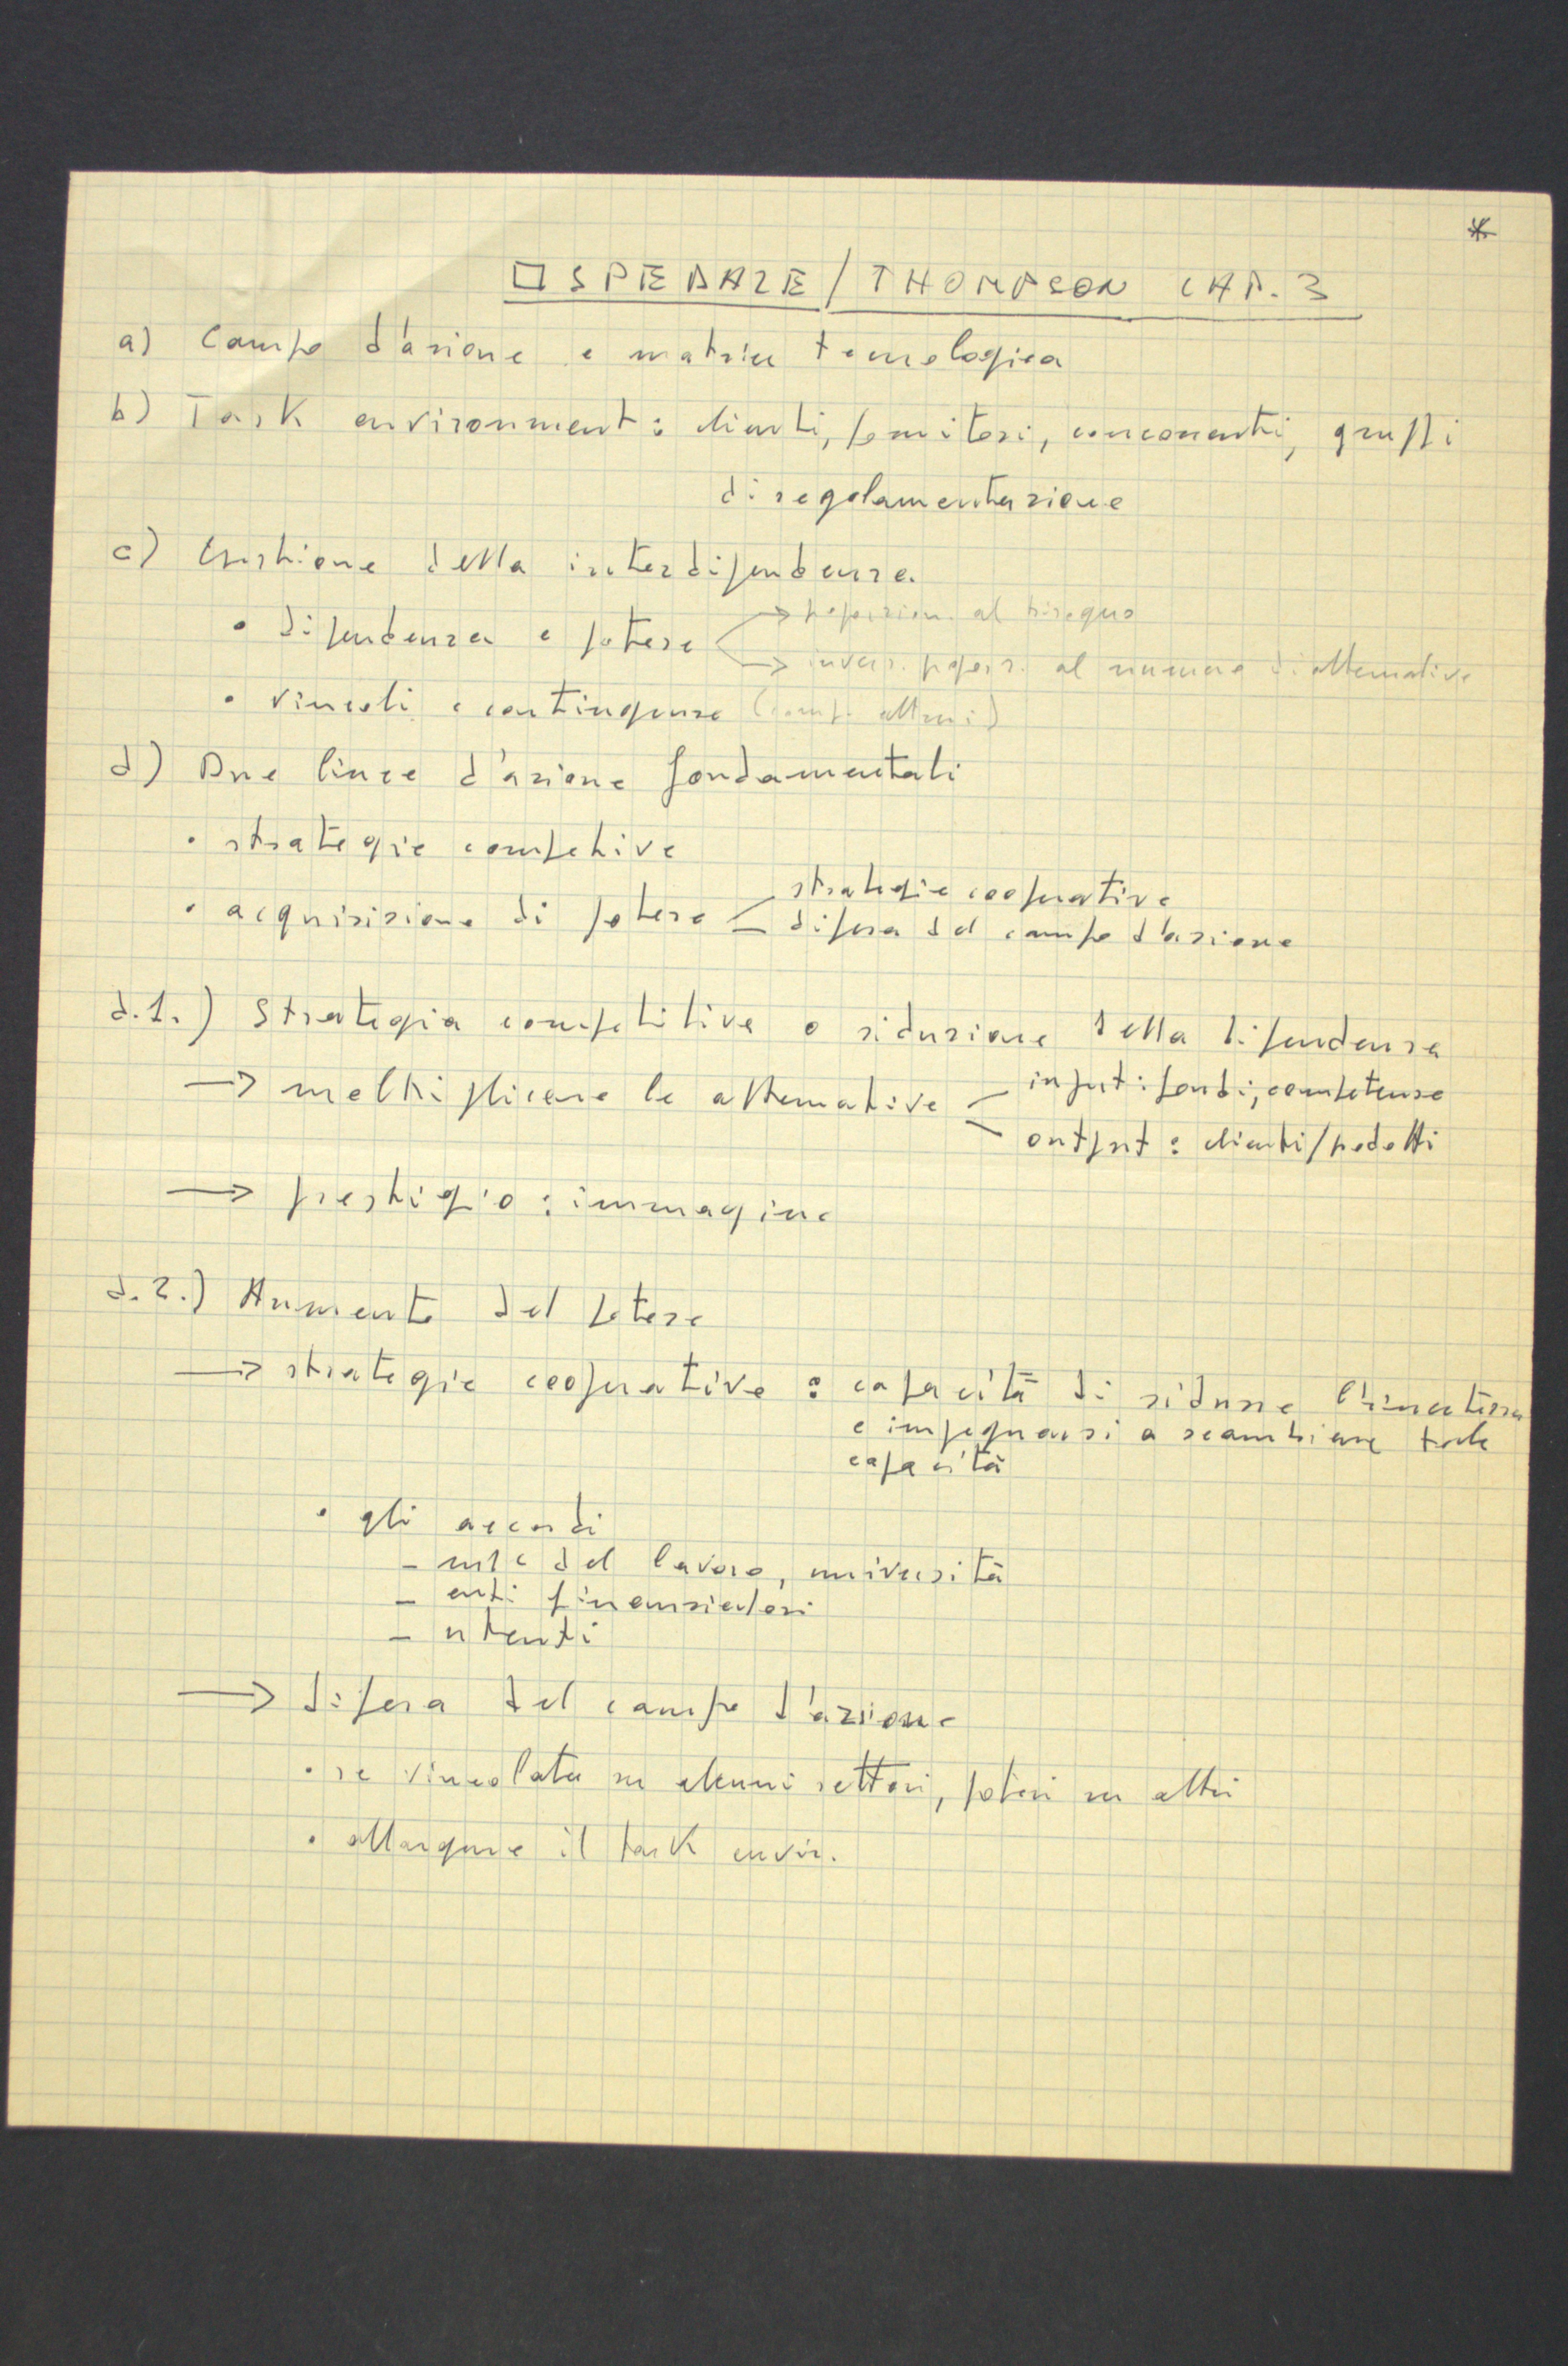 *
OSPEDALE / THOMPSON CAP. 3
a) Campo d'azione e matrice tecnologica
b) Task environment : clienti, fornitori, concorrenti, gruppi
di regolamentazione
c) Gestione della interdipendenza
• dipendenza e potere
→ proporzion. al bisogno
→ invers. proporz. al numero di alternative
• vincoli e contingenze (comp. altrui)
d) Due linee d'azione fondamentali
• strategie competive
• acquisizione di potere
strategie cooperative
difesa del campo d'azione
d.1.) Strategia competitiva o riduzione della dipendenza
→ moltiplicare le alternative
input : fondi, competenze
output : clienti/prodotti
→ prestigio : immagine
d.2.) Aumento del potere
→ strategie cooperative : capacità di ridurre l'incertezza
e impegnarsi a scambiare tale
capacità
• gli accordi
- del lavoro, università
- enti finanziatori
- utenti
→ difesa del campo d'azione
• se vincolata su alcuni settori, poteri su altri
• allargare il task envir.